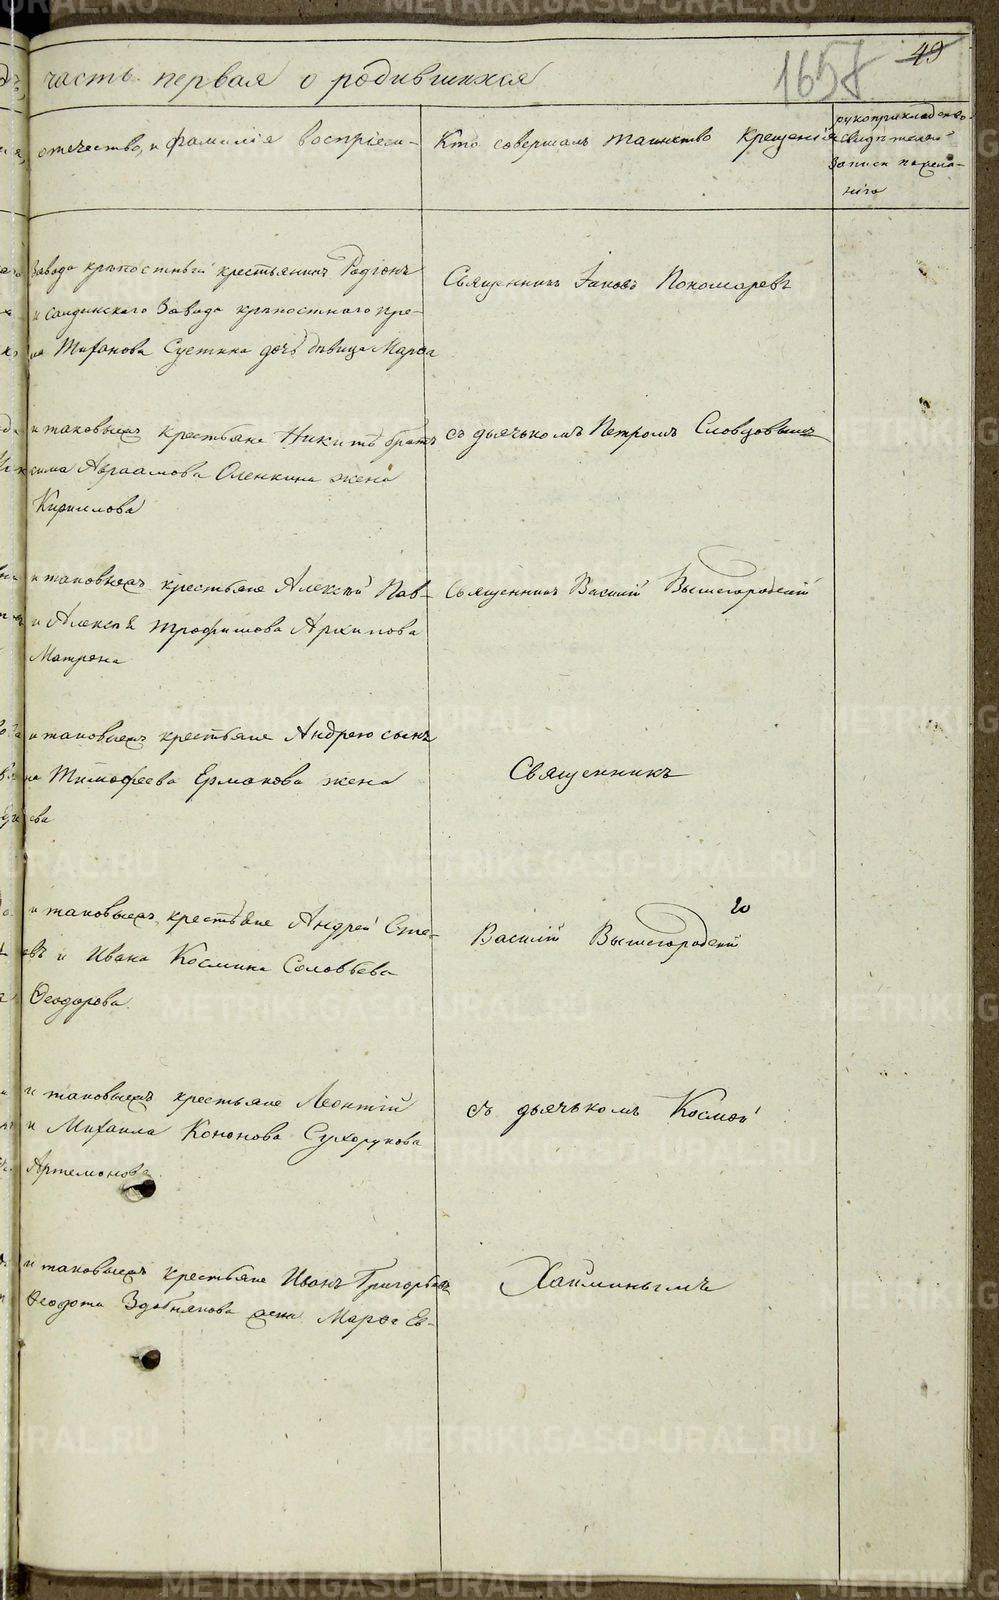 49
1658
часть первая о родившихся
отечество, и фамилія воспріем-
Кто совершалъ таинство крещенія
рукоприкладство
свидѣтелей
записи по жела-
нію
Завода крѣпостный крестьянинъ Родіонъ
и Саидинскаго Завода крѣпостнаго
Тифанова Суетина дочь дѣвица Марѳа
Священникъ Іаковъ Пономаревъ
и таковыехъ крестьяне Никиты братъ
Авраамова Оленкина жена
Кирилова
съ дьячькомъ Петромъ Словцовымъ
и таковыехъ крестьяне Алексѣй Пав-
и Алексѣя Трофимова Архипова
Матрена
Священникъ Василій Вышегородскій
и таковыехъ крестьяне Андрею сынъ
на Тимофеева Ермакова жена
ева
Священникъ
и таковыехъ крестьяне Андрей Сте-
евъ и Ивана Космина Соловьева
Ѳеодорова
Василій Вышегородскій
и таковыехъ крестьяне Леонтій
и Михаила Кононова Сухорукова
Артемонова
съ дьячькомъ Космой
и таковыехъ крестьяне Иванъ Григорьевъ
Ѳеодота Здобнякова жена Марѳа Ев-
Хайминымъ
METRIKI.GASO-URAL.RU